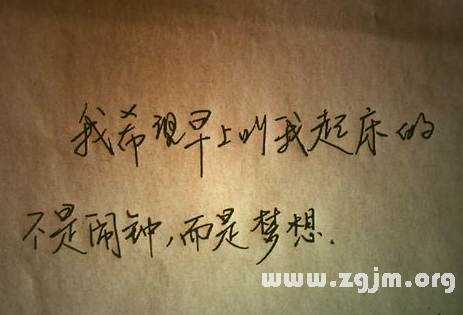 我希望早上叫我起床的
不是闹钟，而是梦想.
www.zgjm.org